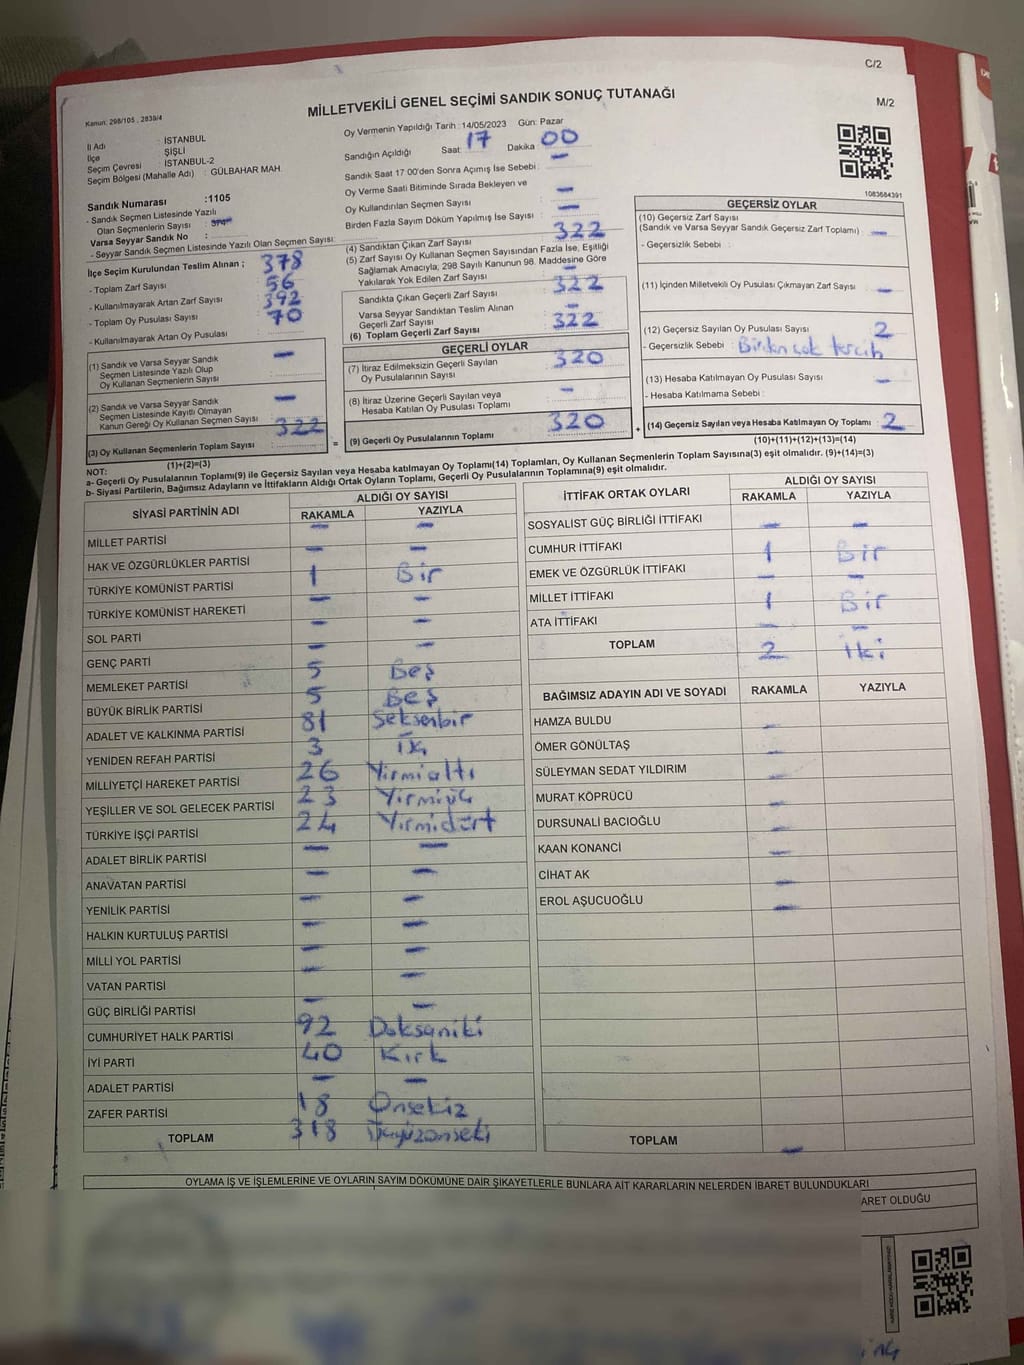 C/2
Kanun: 298/105 , 2839/4
MİLLETVEKİLİ GENEL SEÇİMİ SANDIK SONUÇ TUTANAĞI
M/2
İl Adı : İSTANBUL
İlçe : ŞİŞLİ
Seçim Çevresi : İSTANBUL-2
Seçim Bölgesi (Mahalle Adı) : GÜLBAHAR MAH.
Oy Vermenin Yapıldığı Tarih : 14/05/2023 Gün: Pazar
Sandığın Açıldığı Saat : 17 Dakika 00
Sandık Saat 17 00'den Sonra Açımış İse Sebebi : -
Oy Verme Saati Bitiminde Sırada Bekleyen ve
Oy Kullandırılan Seçmen Sayısı -
Birden Fazla Sayım Döküm Yapılmış İse Sayısı -
1083684391
Sandık Numarası :1105
- Sandık Seçmen Listesinde Yazılı
Olan Seçmenlerin Sayısı :
Varsa Seyyar Sandık No :
- Seyyar Sandık Seçmen Listesinde Yazılı Olan Seçmen Sayısı:
İlçe Seçim Kurulundan Teslim Alınan ;
- Toplam Zarf Sayısı 378
- Kullanılmayarak Artan Zarf Sayısı 56
- Toplam Oy Pusulası Sayısı 392
- Kullanılmayarak Artan Oy Pusulası 70
(1) Sandık ve Varsa Seyyar Sandık
Seçmen Listesinde Yazılı Olup
Oy Kullanan Seçmenlerin Sayısı -
(2) Sandık ve Varsa Seyyar Sandık
Seçmen Listesinde Kayıtlı Olmayan
Kanun Gereği Oy Kullanan Seçmen Sayısı -
(3) Oy Kullanan Seçmenlerin Toplam Sayısı 322
(1)+(2)=(3)
(4) Sandıktan Çıkan Zarf Sayısı 322
(5) Zarf Sayısı Oy Kullanan Seçmen Sayısından Fazla İse, Eşitliği
Sağlamak Amacıyla, 298 Sayılı Kanunun 98. Maddesine Göre
Yakılarak Yok Edilen Zarf Sayısı -
Sandıkta Çıkan Geçerli Zarf Sayısı 322
Varsa Seyyar Sandıktan Teslim Alınan
Geçerli Zarf Sayısı -
(6) Toplam Geçerli Zarf Sayısı 322
GEÇERLİ OYLAR
(7) İtiraz Edilmeksizin Geçerli Sayılan
Oy Pusulalarının Sayısı 320
(8) İtiraz Üzerine Geçerli Sayılan veya
Hesaba Katılan Oy Pusulası Toplamı -
= (9) Geçerli Oy Pusulalarının Toplamı 320
GEÇERSİZ OYLAR
(10) Geçersiz Zarf Sayısı
(Sandık ve Varsa Seyyar Sandık Geçersiz Zarf Toplamı) -
- Geçersizlik Sebebi :
(11) İçinden Milletvekili Oy Pusulası Çıkmayan Zarf Sayısı -
(12) Geçersiz Sayılan Oy Pusulası Sayısı 2
- Geçersizlik Sebebi : Birden çok tercih
(13) Hesaba Katılmayan Oy Pusulası Sayısı -
- Hesaba Katılmama Sebebi :
+ (14) Geçersiz Sayılan veya Hesaba Katılmayan Oy Toplamı 2
(10)+(11)+(12)+(13)=(14)
NOT:
a- Geçerli Oy Pusulalarının Toplamı(9) ile Geçersiz Sayılan veya Hesaba katılmayan Oy Toplamı(14) Toplamları, Oy Kullanan Seçmenlerin Toplam Sayısına(3) eşit olmalıdır. (9)+(14)=(3)
b- Siyasi Partilerin, Bağımsız Adayların ve İttifakların Aldığı Ortak Oyların Toplamı, Geçerli Oy Pusulalarının Toplamına(9) eşit olmalıdır.
SİYASİ PARTİNİN ADI ALDIĞI OY SAYISI
RAKAMLA YAZIYLA
MİLLET PARTİSİ - -
HAK VE ÖZGÜRLÜKLER PARTİSİ - -
TÜRKİYE KOMÜNİST PARTİSİ 1 Bir
TÜRKİYE KOMÜNİST HAREKETİ - -
SOL PARTİ - -
GENÇ PARTİ - -
MEMLEKET PARTİSİ 5 Beş
BÜYÜK BİRLİK PARTİSİ 5 Beş
ADALET VE KALKINMA PARTİSİ 81 Seksenbir
YENİDEN REFAH PARTİSİ 3
MİLLİYETÇİ HAREKET PARTİSİ 26 Yirmialtı
YEŞİLLER VE SOL GELECEK PARTİSİ 23 Yirmiüç
TÜRKİYE İŞÇİ PARTİSİ 24 Yirmidört
ADALET BİRLİK PARTİSİ - -
ANAVATAN PARTİSİ - -
YENİLİK PARTİSİ - -
HALKIN KURTULUŞ PARTİSİ - -
MİLLİ YOL PARTİSİ - -
VATAN PARTİSİ - -
GÜÇ BİRLİĞİ PARTİSİ - -
CUMHURİYET HALK PARTİSİ 92 Doksaniki
İYİ PARTİ 40 Kırk
ADALET PARTİSİ - -
ZAFER PARTİSİ 18 Onsekiz
TOPLAM 318
İTTİFAK ORTAK OYLARI ALDIĞI OY SAYISI
RAKAMLA YAZIYLA
SOSYALİST GÜÇ BİRLİĞİ İTTİFAKI - -
CUMHUR İTTİFAKI 1 Bir
EMEK VE ÖZGÜRLÜK İTTİFAKI - -
MİLLET İTTİFAKI 1 Bir
ATA İTTİFAKI - -
TOPLAM 2 İki
BAĞIMSIZ ADAYIN ADI VE SOYADI RAKAMLA YAZIYLA
HAMZA BULDU -
ÖMER GÖNÜLTAŞ -
SÜLEYMAN SEDAT YILDIRIM -
MURAT KÖPRÜCÜ -
DURSUNALİ BACIOĞLU -
KAAN KONANCİ -
CİHAT AK -
EROL AŞUCUOĞLU -
TOPLAM -
OYLAMA İŞ VE İŞLEMLERİNE VE OYLARIN SAYIM DÖKÜMÜNE DAİR ŞİKAYETLERLE BUNLARA AİT KARARLARIN NELERDEN İBARET BULUNDUKLARI
ARET OLDUĞU